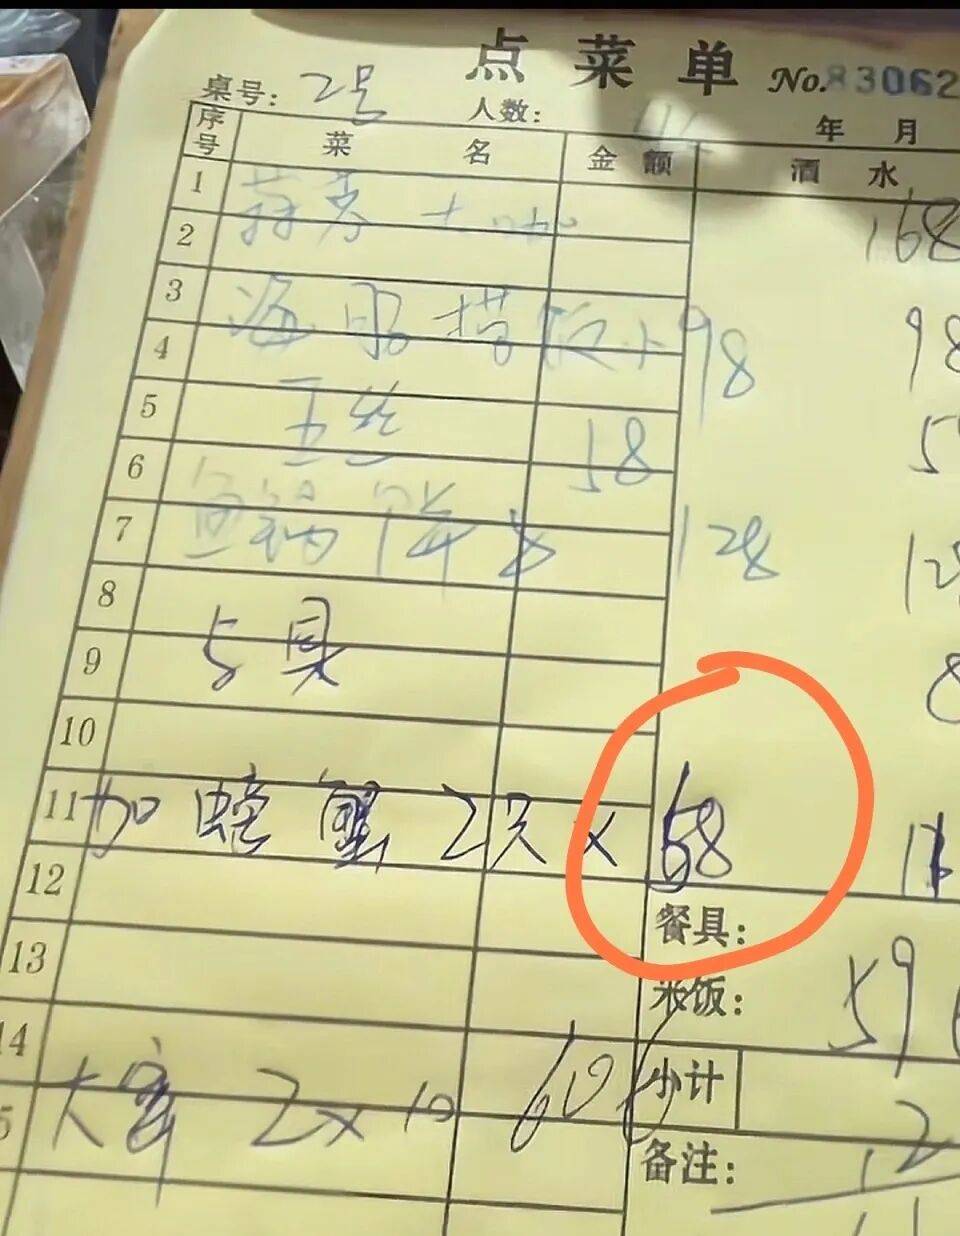 点菜单 No.83062
桌号: 2号 人数: 年 月
序号 菜名 金额 酒水
1 168
2 蒜蓉
3
海 小 98 98
4
5 五丝 58 5
6
7 鱼 128 12
8
5具
9 8
10
11 加螃蟹2只× 58
12
餐具:
13 米饭: 59
14 小计
大 2×10 606 2
5 备注: